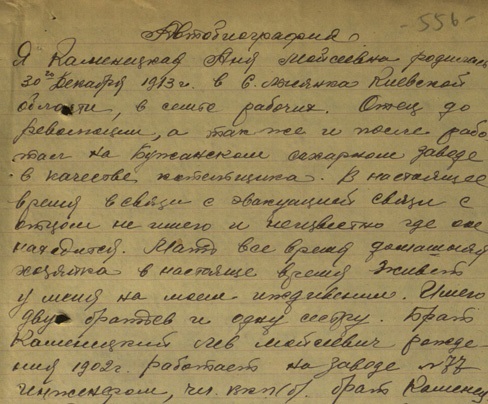 -556-
Автобиография.
Я Каменицкая Аня Мойсеевна родилась
30го Декабря 1913 г. в с. Лысянка Киевской
области, в семье рабочих. Отец до
революции, а так же и после рабо
тал на Бужанском сахарном заводе
в качестве котельщика. В настоящее
время в связи с эвакуацией связи с
отцом не имею и неизвестно где он
находится. Мать все время домашняя
хозяйка в настояще время живет
у меня на моем иждивении. Имею
двух братьев и одну сестру. Брат
Каменицкий Лев Мойсеевич рожде
ния 1902 г. работает на заводе №77
инженером, чл. вкп(б). брат Каменец